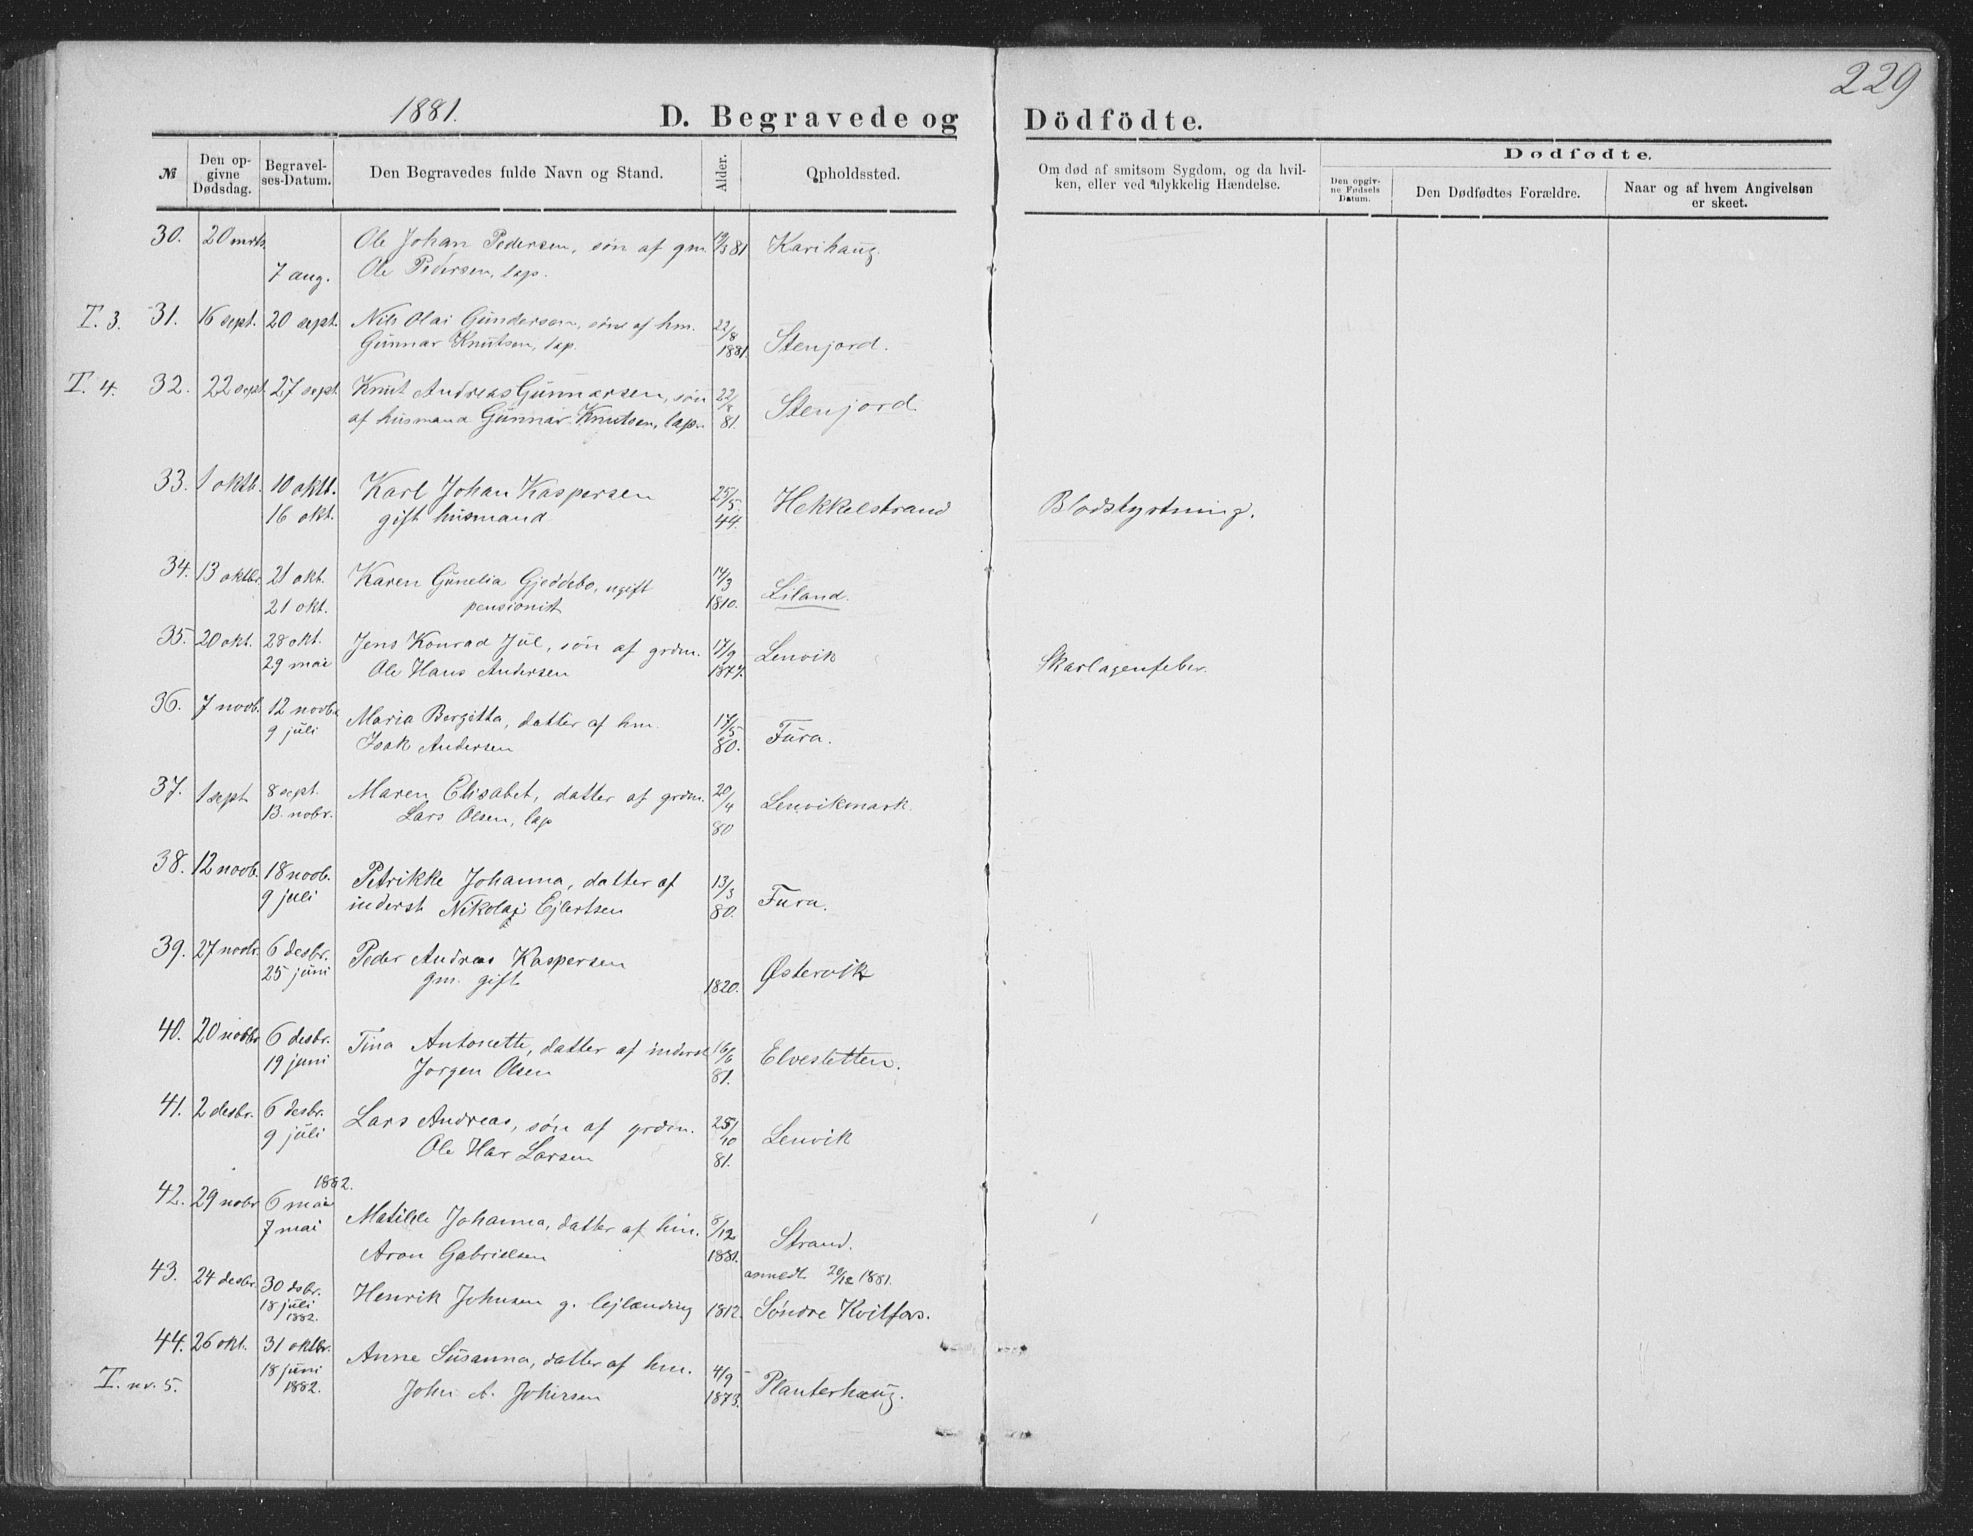 229
1881.
D. Begravede og Dödfödte.
№ Den opgivne Dødsdag. Begravelses-Datum. Den Begravedes fulde Navn og Stand. Alder. Opholdssted. Om død af smitsom Sygdom, og da hvilken, eller ved ulykkelig Hændelse. Dødfødte. Den opgivne Fødsels Datum. Den Dødfødtes Forældre. Naar og af hvem Angivelsen er skeet.
30. 20 mrts Ole Johan Pedersen, søn af gm. 19/3 81 Karihaug.
7 aug. Ole Pedersen, lap.
T. 3. 31. 16 sept. 20 sept. Nils Olai Gundersen, søn af hm. 22/8
Gunnar Knutsen, lap. 1881. Stenjord.
T. 4. 32. 22 sept. 27 sept. Knut Andreas Gunnarsen, søn 22/8
af husmand Gunnar Knutsen, lap. 81. Stenjord.
33. 1 oktb. 10 oktb. Karl Johan Kaspersen 25/5 Hekkelstrand Blodstyrtning.
16 okt. gift husmand 44.
34. 13 oktbr. 21 okt. Karen Gunelia Gjeddebo, ugift 14/3
21 okt. pensionist 1810. Liland.
35. 20 okt. 28 okt. Jens Konrad Jul, søn af grdm. 17/9 Lenvik
29 mai Ole Hans Andersen 1877. Skarlagenfeber.
36. 7 novb. 12 novbr Maria Bergitta, datter af hm. 17/5
9 juli Isak Andersen 80. Fura.
37. 1 sept. 8 sept. Maren Elisabet, datter af grdm. 20/4 Lenvikmark.
13. nobr. Lars Olsen, lap 80
38. 12 novb. 18 novb. Petrikke Johanna, datter af 13/3
9 juli inderst Nikolaj Ejlertsen 80. Fura.
39. 27 novbr. 6 desbr. Peder Andreas Kaspersen
25 juni gm. gift 1820. Østervik
40. 20 nobbr 6 desbr. Tina Antonette, datter af inderst 16/6 Elvestetten.
19 juni Jørgen Olsen 81.
41. 2 desbr. 6 desbr. Lars Andreas, søn af grdm. 25/10 Lenvik
9 juli Ole Har Larsen 81.
1882.
42. 29 nobr 6 mai
7 mai Matilde Johanna, datter af hm. 8/12 Strand.
Aron Gabrielsen 1881.
43. 24 desbr. 30 dsbr. anmeldt 29/12 1881.
18 juli Henrik Johnsen g. lejlænding 1812. Søndre Kvitfors.
1882.
44. 26 okt. 31 oktbr. Anne Susanna, datter af hm. 4/9
18 juni
T. nr. 5. 1882. John A. Johnsen 1873. Planterhaug.